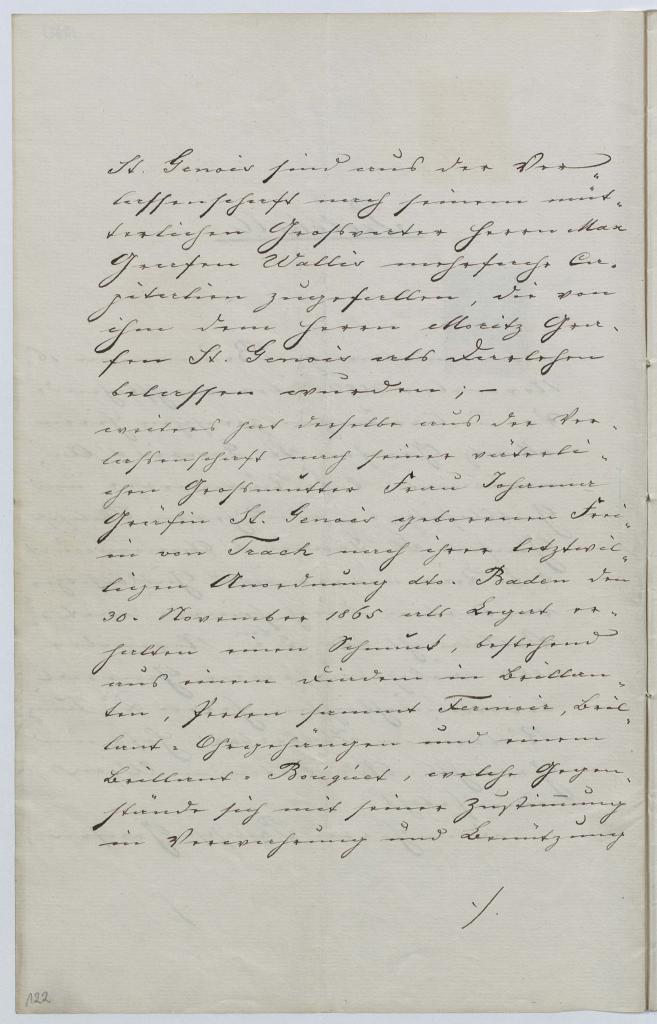 St. Genois sind aus der Ver„
lassenschaft nach seinem müt„
terlichen Grosvater Herrn Max
Grafen Wallis mehrfache Ca„
pitalien zugefallen, die von
ihm dem Herrn Moritz Gra„
fen St. Genois als Darlehen
belassen wurden; –
weiters hat derselbe aus der Ver„
lassenschaft nach seiner väterli„
chen Grosmutter Frau Johanna
Gräfin St. Genois geborenen Frei„
in von Trach nach ihrer letztwil„
ligen Anordnung dto. Baden den
30. November 1865 als Legat er„
halten einen Schmuck, bestehend
aus einem Diadem in Brillan„
ten, Perlen sammt Fermoir, Bril„
lant= Ohrgehängen und einem
Brillant= Bouquet, welche Gegen„
stände sich mit seiner Zustim̄ung
in Verwahrung und Benützung
./.
122